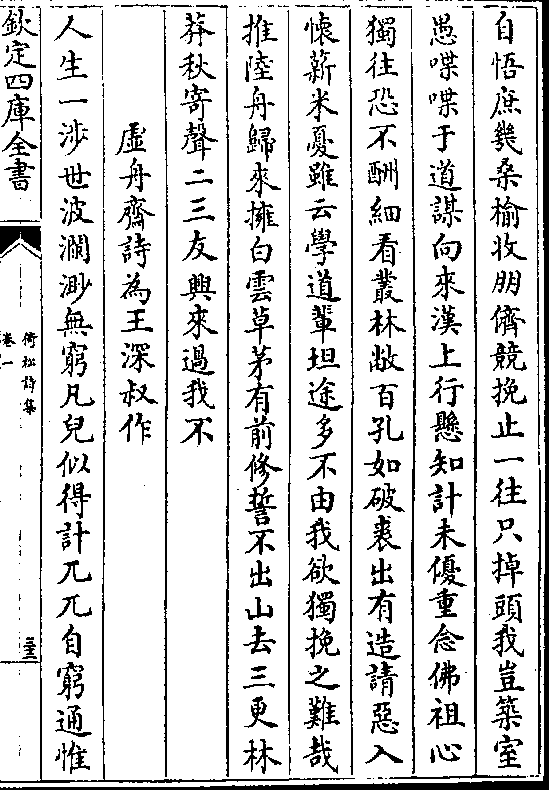 自悟庶幾桑榆收朋儕競挽止一往只掉頭我豈築室
愚喋喋于道謀向來漢上行懸知計未優重念佛祖心
獨往恐不酬細看叢林敝百孔如破裘出有造請惡入
懐薪米憂雖云學道輩坦途多不由我欲獨挽之難哉
推陸舟歸來擁白雲草茅有前修誓不出山去三更林
莽秋寄聲二三友興來過我不
虚舟齋詩為王深叔作
人生一涉世波瀾渺無窮凡兒似得計兀兀自窮通惟
欽定四庫全書
倚松詩集
卷一
三三